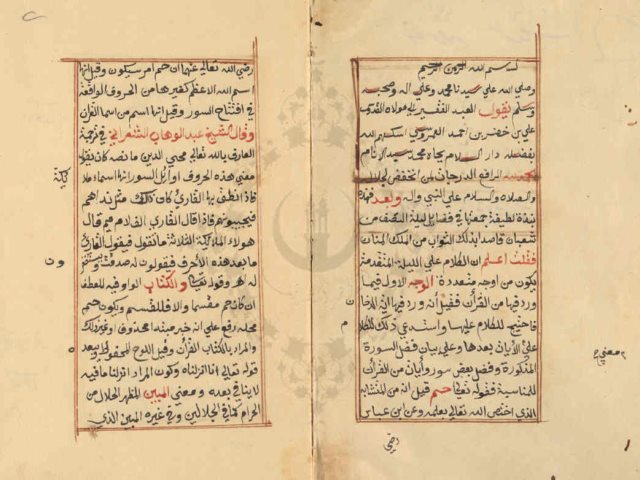 بسم الله الرحمن الرحيم
وصلى الله علي سيدنا محمد وعلى اله وصحبه
وسلم يقول العبد الفقير الي مولاه القدير
علي بن خضر بن احمد العمروسي اسكنه الله
بفضله دار السلام بجاه محمد سيد الانام
الرافع الدرجات لمن انخفض لجلال
والصلاه والسلام علي النبي واله وبعد فهذه
نبذة لطيفة جمعتها في فضايل ليلة النصف من
شعبان قاصدا بذلك الثواب من الملك المنان
فقلت اعلم ان الكلام علي الليلة المتقدمة
يكون من اوجه متعددة الوجه الاول فيما
ورد فيها من القرآن فقيل انه ورد فيها آية الدخا
فاحتيج للكلام عليها واستدعي ذلك الكلا
علي الآيات بعدها وعلي بيان فضل السورة
المذكورة وفضل بعض سور وايات من القرآن
للمناسبة فقوله تعالي حم قيل انه من المتشابه
الذي اختص الله تعالي بعلمه وعن ابن عباس
رضي
رضي الله تعالي عنهما ان حم امر سيكون وقيل انها
اسم الله الاعظم كغيرها من الحروف الواقعة
في افتتاح السور وقيل انها اسم من اسما القرآن
وقال الشيخ عبد الوهاب الشعراني في ترجمة
العارف بالله تعالي محيي الدين ما نصه كان يقول
معني هذه الحروف اوايل السور انها اسماء ملا
فاذا نطق بها القاريء كان كذلك مثل نداهم
فيجيبونه فاذا قال القاري الف لام ميم قال
هولاء الملائكة الثلاثة ما تقول فيقول القاريء
ما بعد هذه الاحرف فيقولون له صدقت ويستغفر
له اهـ وقوله تعالي والكتاب الواو فيه للعطف
ان كان حم مقسما والا فللقسم ويكون حم
محله رفع علي انه خبر مبتدء محذوف او غير ذلك
والمراد بالكتاب القرآن وقيل اللوح المحفوظ
قوله تعالي انا انزلناه ويكون المراد انزلنا ما فيه
لا ينافي بعده ومعني المبين المظهر الحلال من
الحرام كما في الجلالين وفي غيره المبين الذي